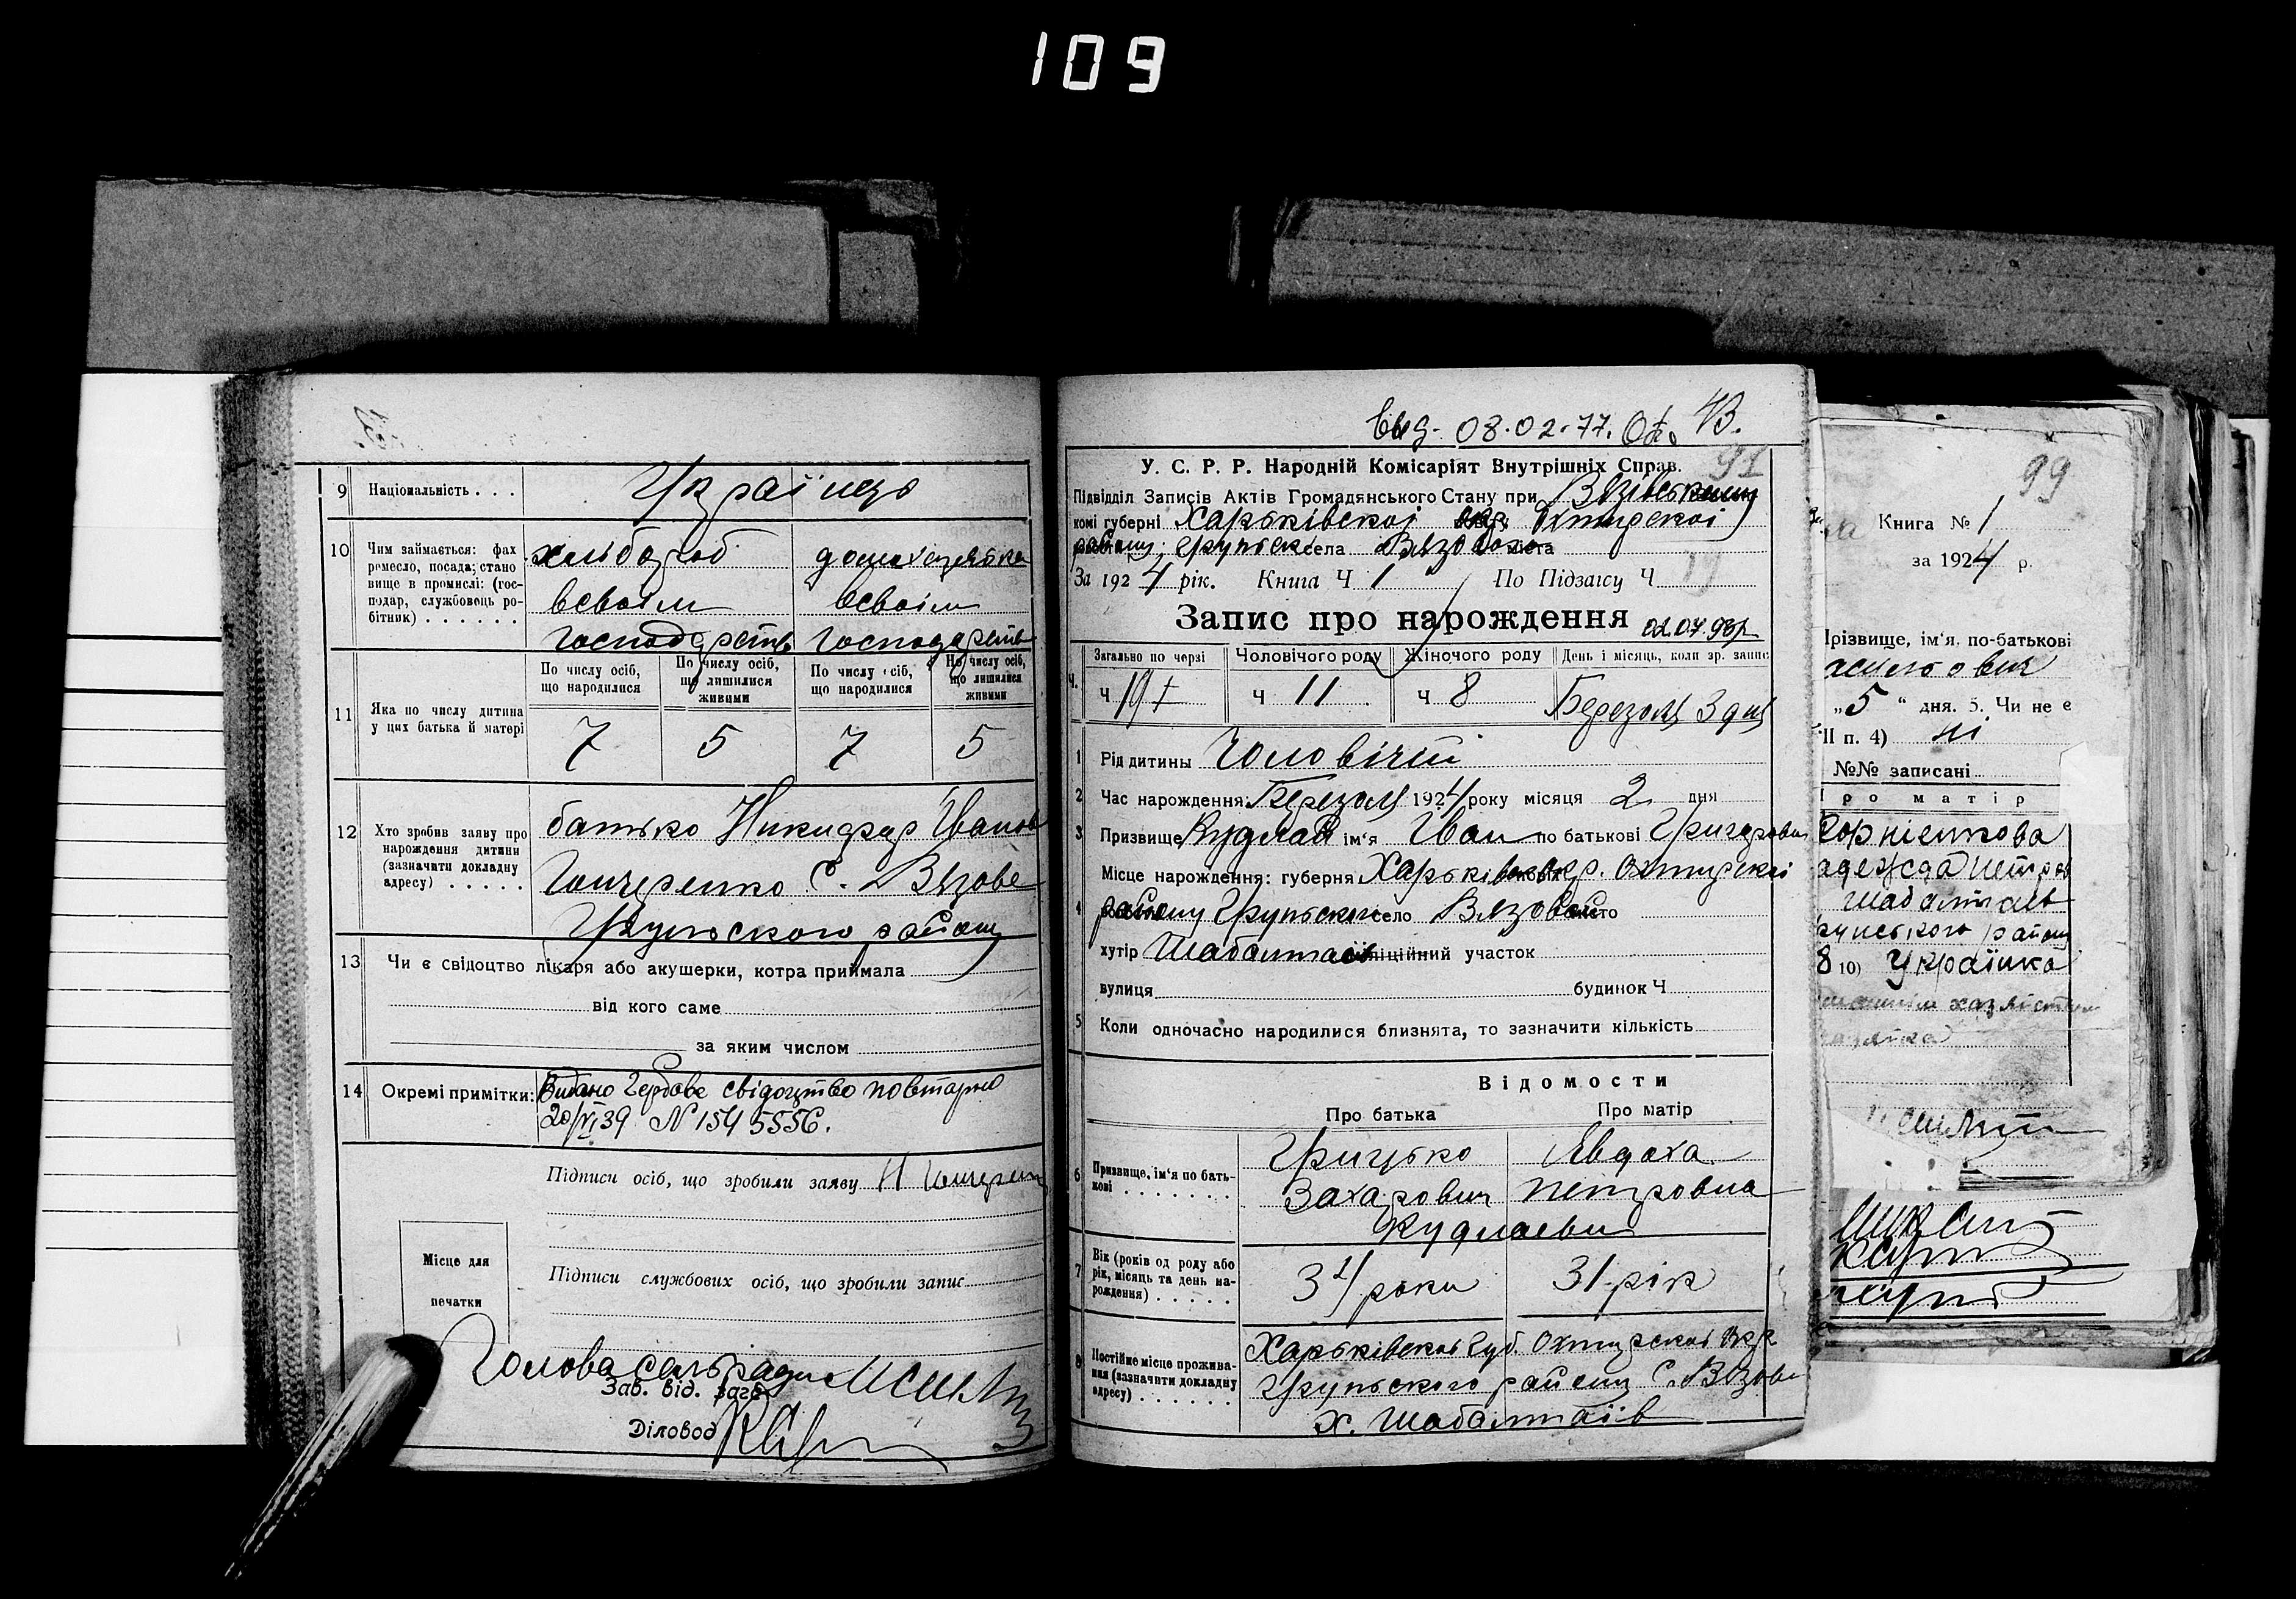 109
9 Національність . . . Українці
10 Чим займається: фах хлібороб домохазяйка
ремесло, посада; стано
вище в промислі: (гос- всвоїм всвоїм
подар, службовець ро-
бітник) . . . . . . господарстві господарстві
По числу осіб, що народилися По числу осіб, що лишилися живими По числу осіб, що народилися По числу осіб, що лишилися живими
11 Яка по числу дитина
у цих батька й матері 7 5 7 5
12 Хто зробив заяву про батько Никифор Іванов
нарождення дитини
(зазначити докладну Гончаренко С. Вязове
адресу) . . . . . Грунського району
13 Чи є свідоцтво лікаря або акушерки, котра приймала
від кого саме
за яким числом
14 Окремі примітки: Видано Гербове свідоцтво повторно
20/VI 39 N 154 5556.
Підписи осіб, що зробили заяву Н Гончарен
Місце для
печатки
Підписи службових осіб, що зробили запис
Голова сельради
Зав. від. загс
Діловод
Выд. 08.02.77. 43.
91
У. С. Р. Р. Народній Комісаріят Внутрішніх Справ.
Підвідділ Записів Актів Громадянського Стану при Вязівському
комі губерні Харьківскої окр. Охтирскої
району Груньск села Вязового міста
За 1924 рік. Книга Ч 1 По Підзагсу Ч 19
Запис про нарождення 02.07.93р.
Загально по черзі Чоловічого роду Жіночого роду День і місяць, коли зр. запис
Ч 19 Ч 11 Ч 8 Березоля 3 дня
1 Рід дитини Чоловічий
2 Час нарождення: Березоля 1924 року місяця 2 дня
3 Призвище Кудлай ім'я Іван по батькові Григорович
Місце нарождення: губерня Харьківськ окр. Охтирскої
4 району Грунського село Вязове місто
хутір Шабалтаїв міліційний участок
вулиця будинок Ч
5 Коли одночасно народилися близнята, то зазначити кількість
Відомости
Про батька Про матір
6 Призвище, ім'я по бать-
кові . . . . . . . Грицько Явдоха
Захарович Петровна
Кудлаєви
7 Вік (років од роду або
рік, місяць та день на-
рождення) . . . . . 34 роки 31 рік
8 Постійне місце прожива-
ння (зазначити докладну
адресу) . . . . . . Харьківскої губ. Охтирскої Окр
Грунського району С. Вязове
х. Шабалтаїв
99
Книга № 1
за 1924 р.
Прізвище, ім'я, по-батькові
„5“ дня. 5. Чи не є
II п. 4) ні
№№ записані
Про матір
Корнієнкова
Шабалтаїв
8 10) Українка